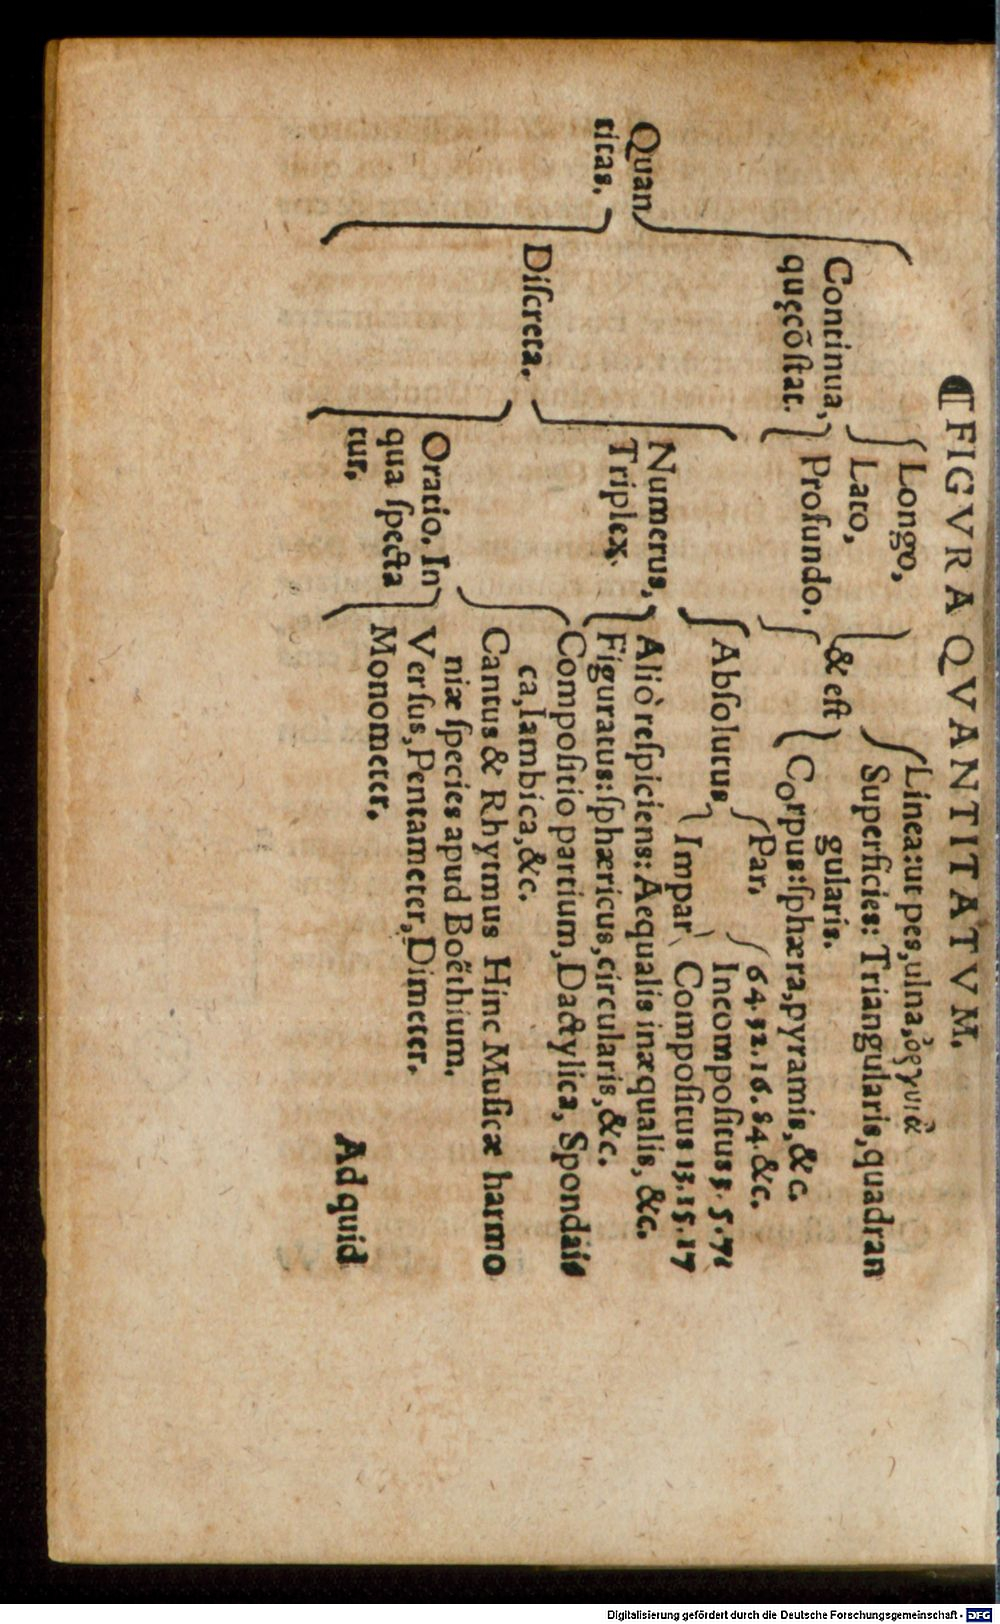 ¶FIGVRA QVANTITATVM.
Quan
titas.
Continua,
quęcōſtat.
Longo,
Lato,
Profundo.
& eſt
Linea: ut pes, ulna, ὀργυιὰ
Superficies: Triangularis, quadran
gularis.
Corpus: ſphæra, pyramis, &c.
Diſcreta.
Numerus,
Triplex.
Abſolutus
Par.
64. 32. 16. 84. &c.
Impar
Incompoſitus 3. 5. 7.
Compoſitus 13. 15. 17
Aliò reſpiciens: Aequalis inæqualis, &c.
Figuratus: ſphæricus, circularis, &c.
Oratio. In
qua ſpecta
tur.
Compoſitio partium, Dactylica, Spondai-
ca, Iambica, &c.
Cantus & Rhytmus Hinc Muſicæ harmo
niæ ſpecies apud Boëthium.
Verſus, Pentameter, Dimeter.
Monometer.
Ad quid
Digitalisierung gefördert durch die Deutsche Forschungsgemeinschaft - DFG